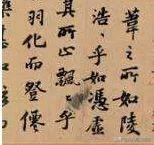 葦之所如陵
浩〻乎如憑虛
其所止飄〻乎
羽化而登僊